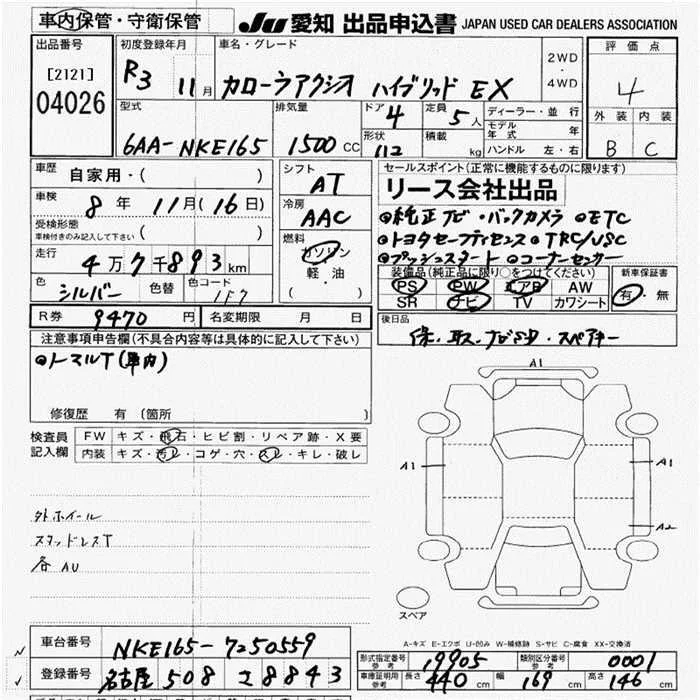 車内保管・守衛保管
JU 愛知 出品申込書 JAPAN USED CAR DEALERS ASSOCIATION
出品番号 初度登録年月 車名・グレード 2WD・4WD 評価点
[2121] 04026 R3 11月 カローラアクシオ ハイブリッド EX 4
型式 排気量 ドア 4 定員 5人 ディーラー・並行 外装 内装
モデル年式 年
6AA-NKE165 1500CC 形状 112 積載 kg ハンドル 左・右 B C
車歴 自家用・( ) シフト AT セールスポイント(正常に機能するものに限ります)
リース会社出品
車検 8年 11月(16日) 冷房 AAC ◎純正ナビ・バックカメラ ◎ETC
受検形態 車検付きのみ記入して下さい ( ) ◎トヨタセーフティセンス ◎TRC/VSC
燃料 ガソリン 軽・油 ( ) ◎プッシュスタート ◎コーナーセンサー
走行 4万7千893km 装備品(純正品に限り○をつけてください) 新車保証書
色 シルバー 色替 色コード 1F7 PS PW エアB AW 有・無
SR ナビ TV カワシート
R券 9470円 名変期限 月 日 後日品
保、取、ナビSD、スペアキー
注意事項申告欄(不具合内容等は具体的に記入して下さい)
◎ノマルT(車内)
修復歴 有(箇所 )
検査員記入欄 FW キズ・飛石・ヒビ割・リペア跡・X要
内装 キズ・汚レ・コゲ・穴・スレ・キレ・破レ
A1
A1 A1
A2
外ホイール
スタッドレスT
各AU
スペア
A-キズ E-エクボ U-凹み W-補修跡 S-サビ C-腐食 XX-交換済
車台番号 NKE165-7250559
登録番号 名古屋 508 さ 8843
型式指定番号 参考 19905 類別区分番号 参考 0001
車庫証明用 参考 長さ 440cm 幅 169cm 高さ 146cm